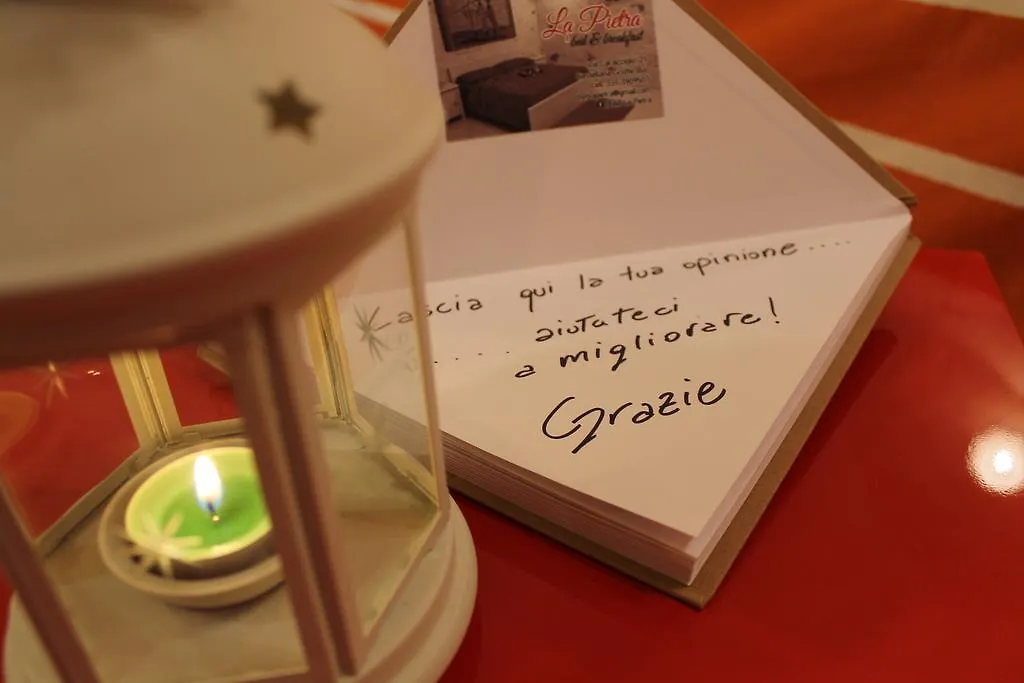 La Pietra
bed & breakfast
Lascia qui la tua opinione ....
.... aiutateci
a migliorare!
Grazie